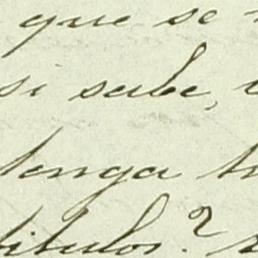 que se
si sabe,
tenga
titulos?